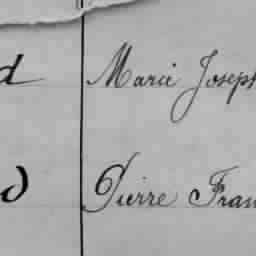 d Marie Joseph
d Pierre Fran